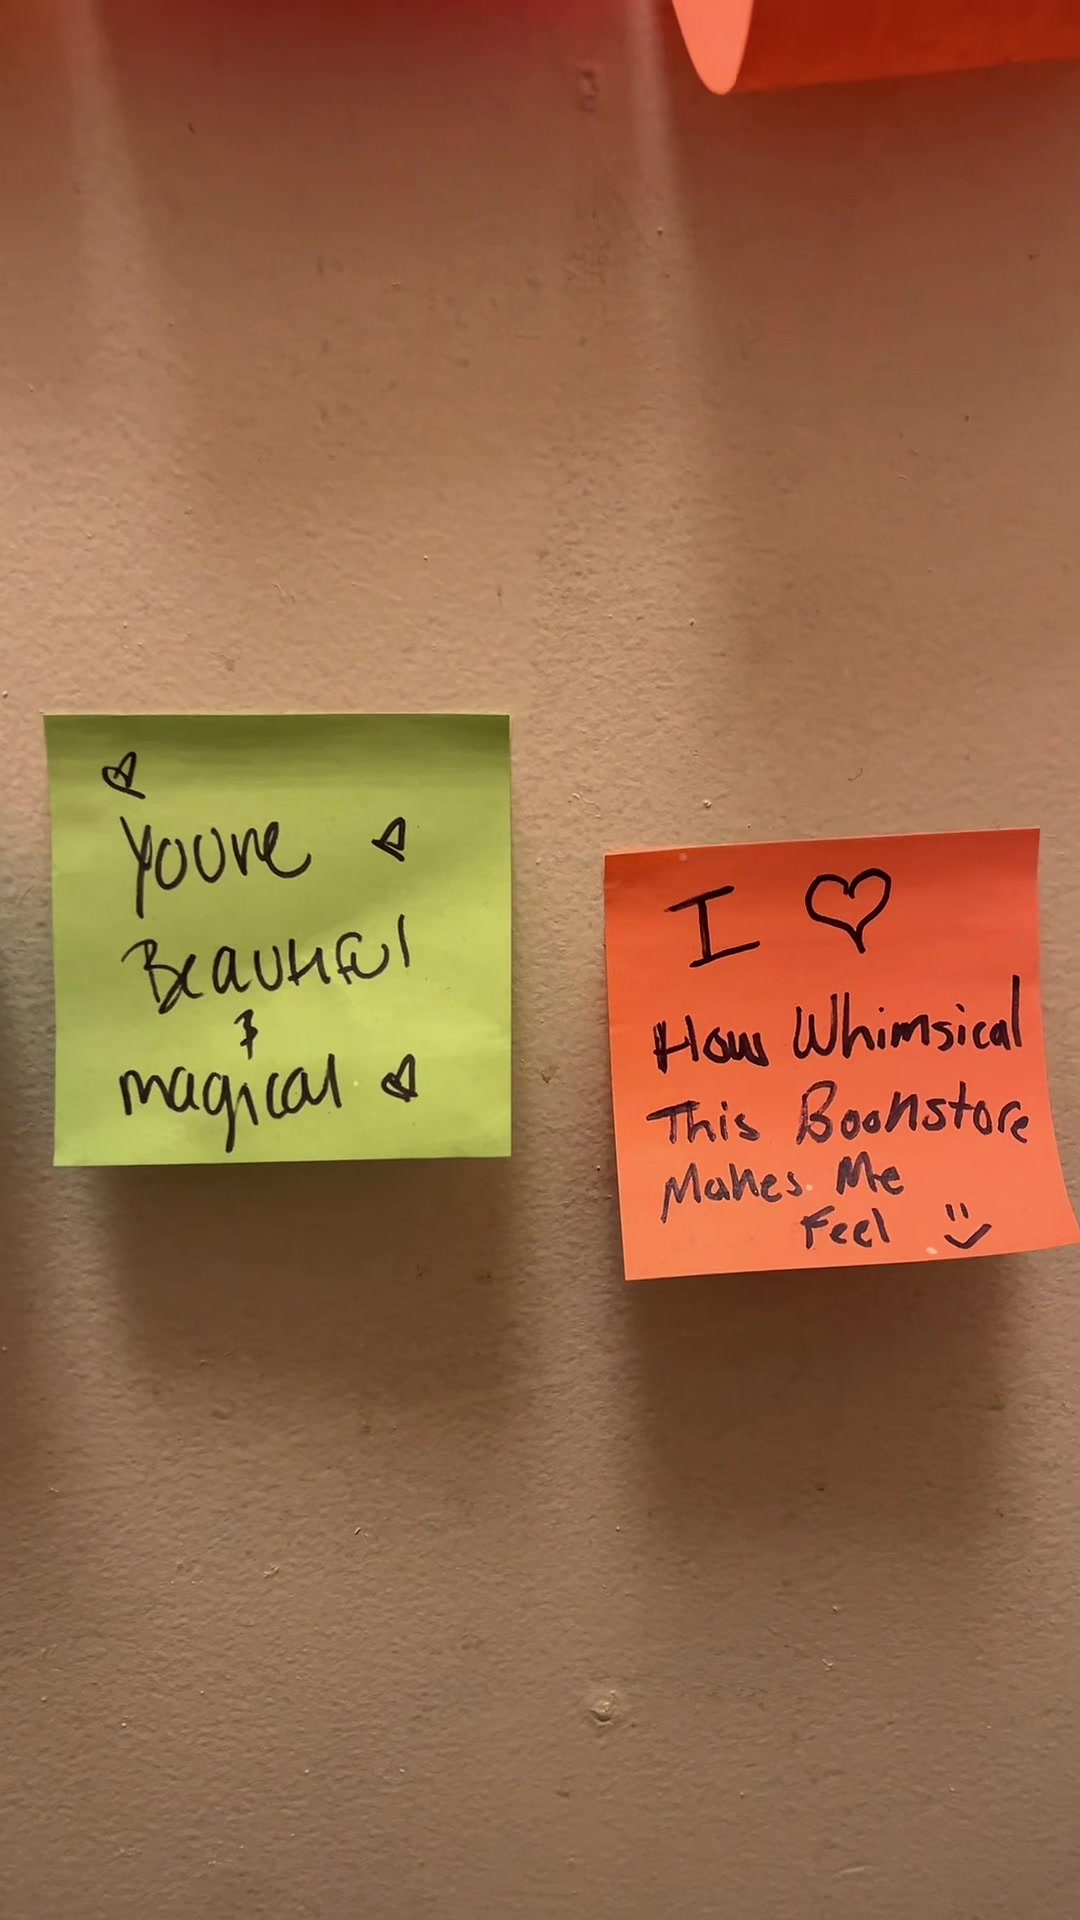 Youre
Beautiful
&
magical
I ♡
How Whimsical
This Bookstore
Makes Me
Feel